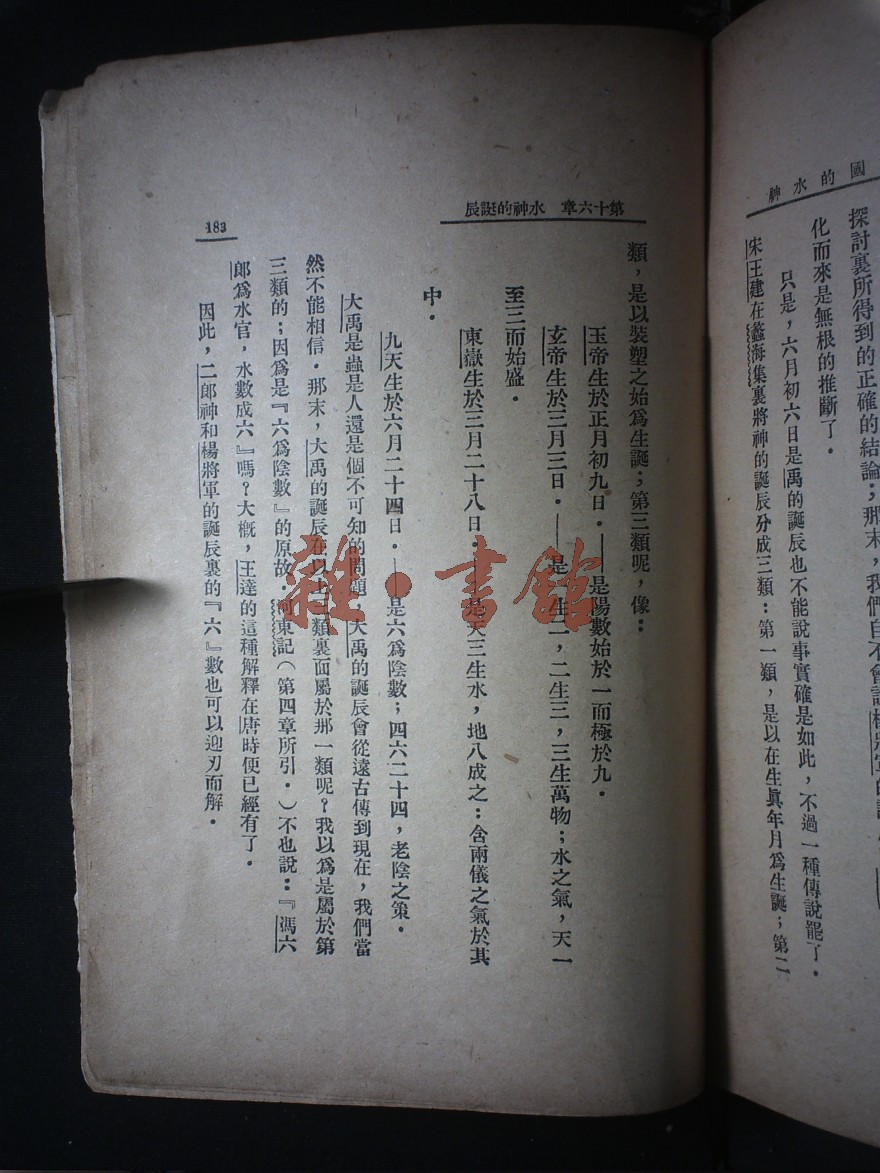 國的水神
探討裏所得到的正確的結論;那末,我們自不會說楊將軍的
化而來是無根的推斷了.
只是,六月初六日是禹的誕辰也不能說事實確是如此,不過一種傳說罷了.
宋王建在蠡海集裏將神的誕辰分成三類:第一類,是以在生眞年月爲生誕;第二
第十六章 水神的誕辰
類,是以裝塑之始爲生誕;第三類呢,像:
玉帝生於正月初九日.——是陽數始於一而極於九.
玄帝生於三月三日.——是一生二,二生三,三生萬物;水之氣,天一
至三而始盛.
東嶽生於三月二十八日.——是天三生水,地八成之:含兩儀之氣於其
中.
九天生於六月二十四日.——是六爲陰數;四六二十四,老陰之策.
大禹是蟲是人還是個不可知的問題,大禹的誕辰會從遠古傳到現在,我們當
然不能相信.那末,大禹的誕辰在以上三類裏面屬於那一類呢?我以爲是屬於第
三類的;因爲是『六爲陰數』的原故.河東記(第四章所引.)不也說:『馮六
郎爲水官,水數成六』嗎?大概,王逵的這種解釋在唐時便已經有了.
因此,二郎神和楊將軍的誕辰裏的『六』數也可以迎刃而解.
183
雜·書館